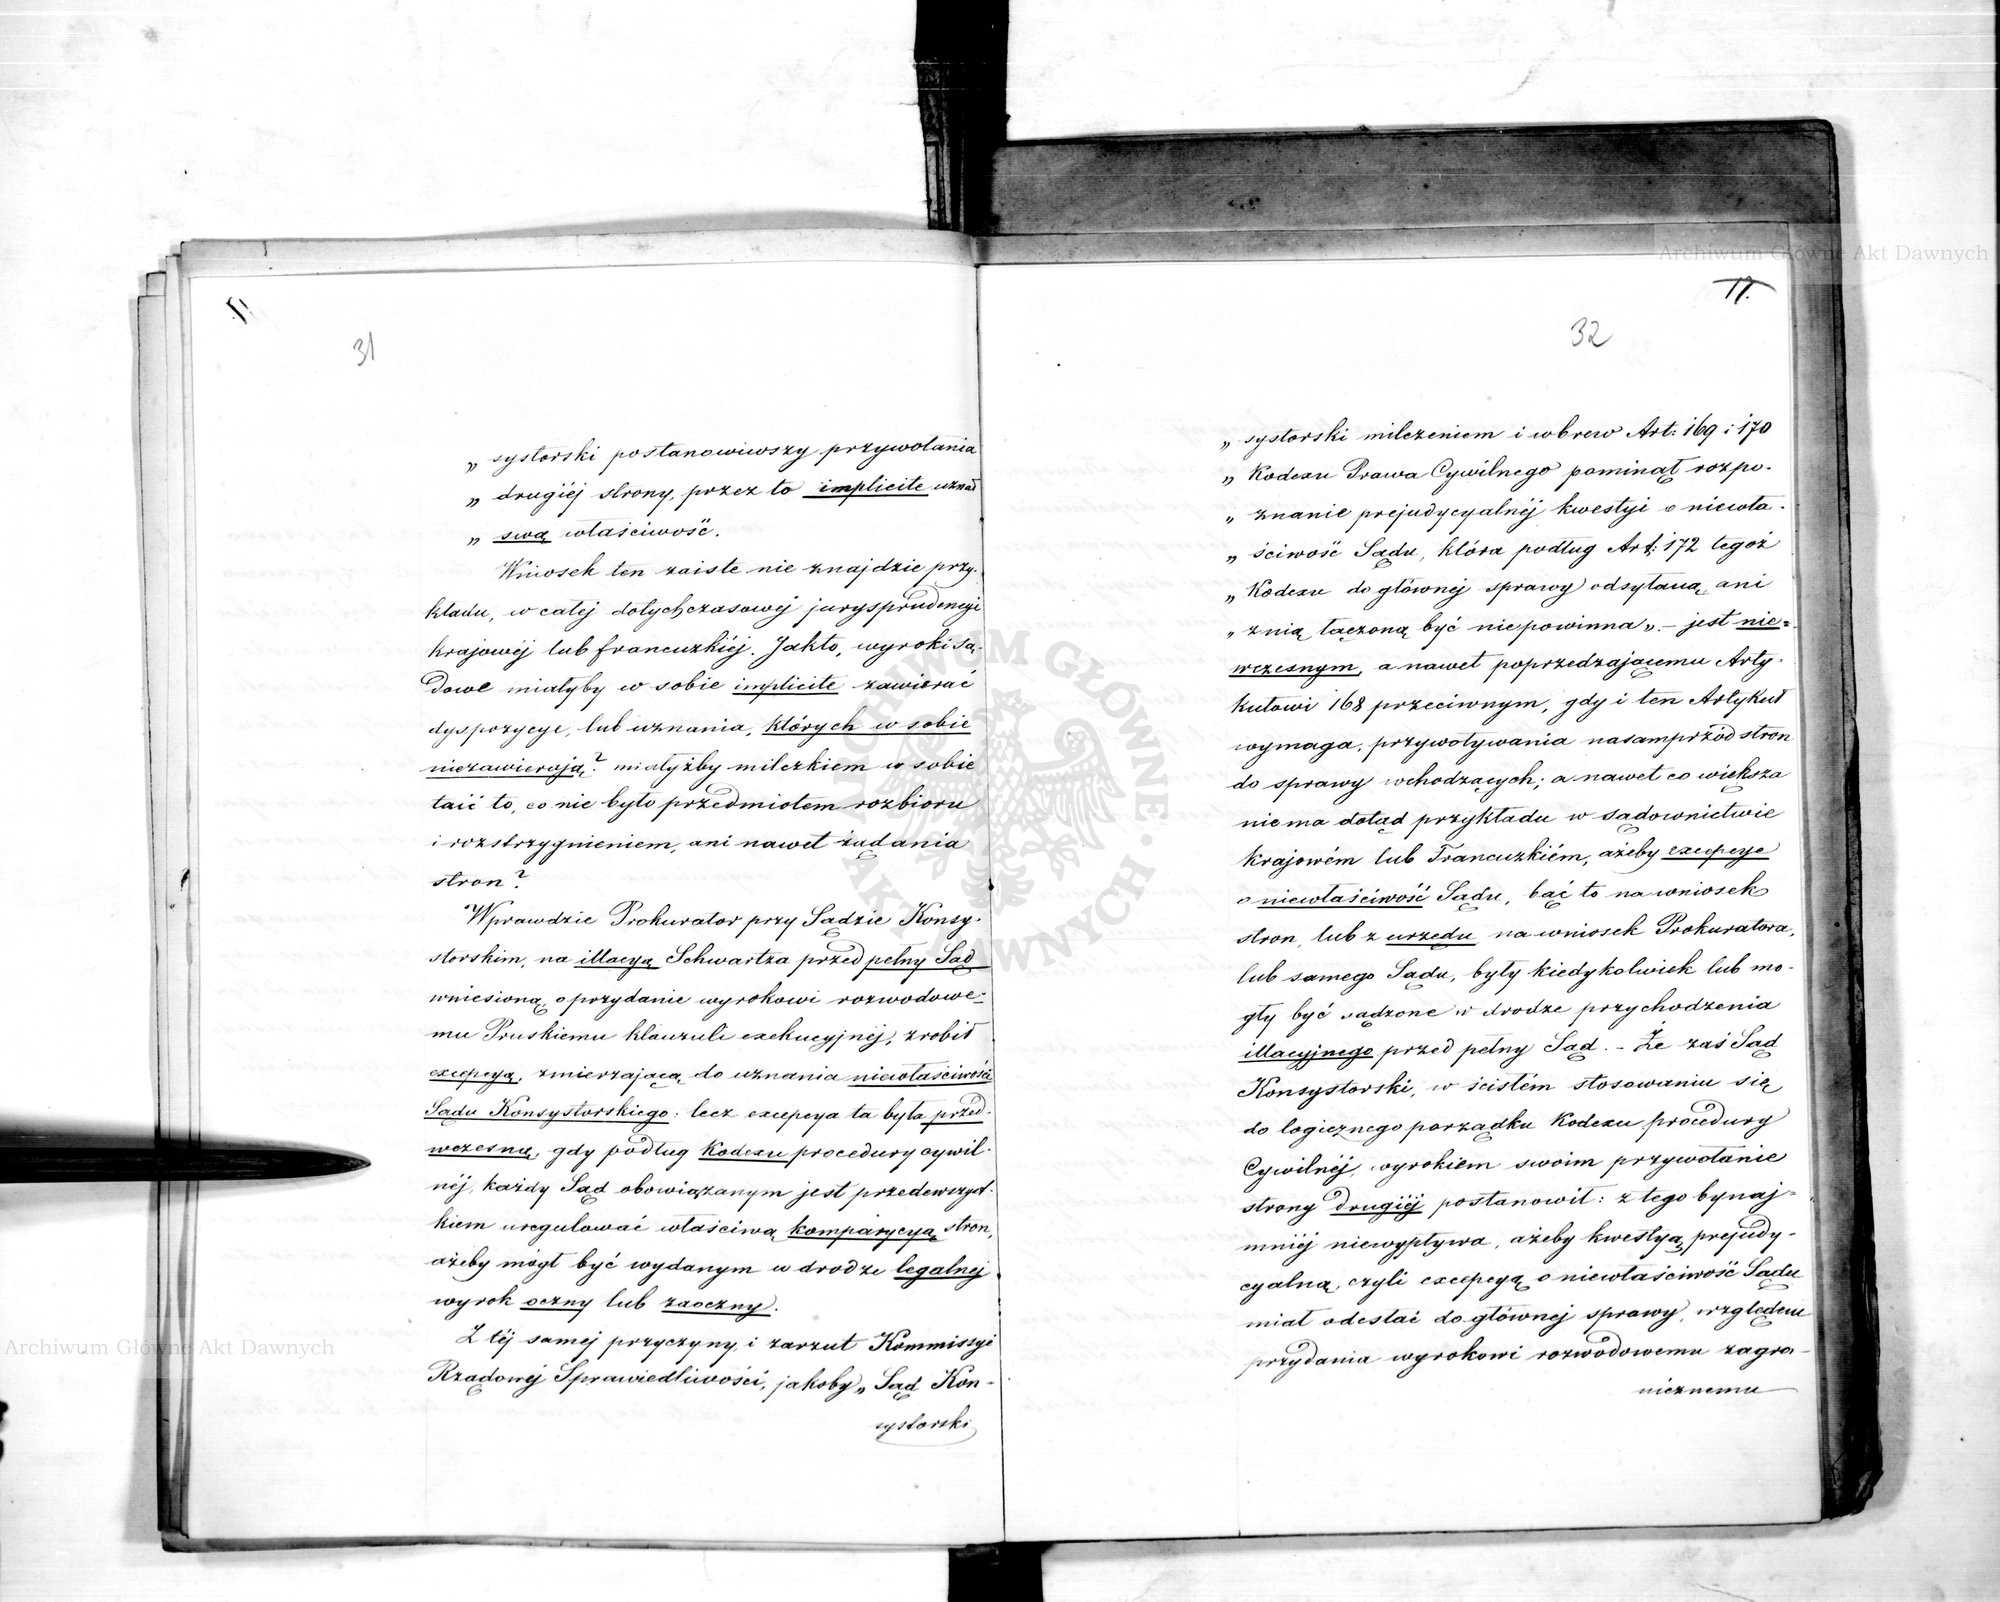 31
„ systorski postanowiwszy przywołania
„ drugiéj strony, przez to implicite uznał
„ swą właściwość.
Wniosek ten zaiste nie znajdzie przy-
kładu, w całej dotychczasowej jurysprudencyi
krajowéj lub francuzkiéj. Jakto, wyroki są-
dowe miałyby w sobie implicite zawierać
dyspozycye, lub uznania, których w sobie
niezawierają? miałyżby milczkiem w sobie
taić to, co nie było przedmiotem rozbioru
i rozstrzygnieniem, ani nawet żądania
stron?
Wprawdzie Prokurator przy Sądzie Konsy-
storskim, na illacyą Schwartza przed pełny Sąd
wniesioną, o przydanie wyrokowi rozwodowe-
mu Pruskiemu klauzuli exekucyjnéj, zrobił
excepcyą, zmierzającą do uznania niewłaściwości
Sądu Konsystorskiego: lecz excepcya ta była przed-
wczesną, gdy podług Kodexu procedury cywil-
néj, każdy Sąd obowiązanym jest przedewszyst-
kiem uregulować właściwą komparycyą stron,
ażeby mógł być wydanym w drodze legalnej
wyrok oczny lub zaoczny.
Z téj samej przyczyny, i zarzut Kommissyi
Rządowéj Sprawiedliwości, jakoby „ Sąd Kon-
systorski
17.
32
„ systorski milczeniem i wbrew Art: 169 i 170
„ Kodexu Prawa Cywilnego pominął rozpo-
„ znanie prejudycyalnéj kwestyi o niewła-
„ ściwość Sądu, która podług Art: 172 tegoż
„ Kodexu do głównéj sprawy odsyłaną, ani
„ z nią łączoną być niepowinna„ - jest nie=
wczesnym, a nawet poprzedzającemu Arty-
kułowi 168 przeciwnym, gdy i ten Artykuł
wymaga, przywoływania nasamprzód stron
do sprawy wchodzących; a nawet co większa
niema dotąd przykładu w sądownictwie
krajowém lub Francuzkiém, ażeby excepcye
o niewłaściwość Sądu, bąć to na wniosek
stron, lub z urzędu na wniosek Prokuratora,
lub samego Sądu, były kiedykolwiek lub mo-
gły być sądzone w drodze przychodzenia
illacyjnego przed pełny Sąd. - Że zaś Sąd
Konsystorski, w ścisłém stosowaniu się
do logicznego porządku Kodexu procedury
Cywilnéj, wyrokiem swoim przywołanie
strony drugiéj postanowił: z tego bynaj=
mniéj niewypływa, ażeby kwestyą prejudy-
cyalną, czyli excepcyą o niewłaściwość Sądu
miał odesłać do głównej sprawy, względem
przydania wyrokowi rozwodowemu zagra-
nicznemu
Archiwum Główne Akt Dawnych
Archiwum Główne Akt Dawnych
ARCHIWUM GŁÓWNE AKT DAWNYCH